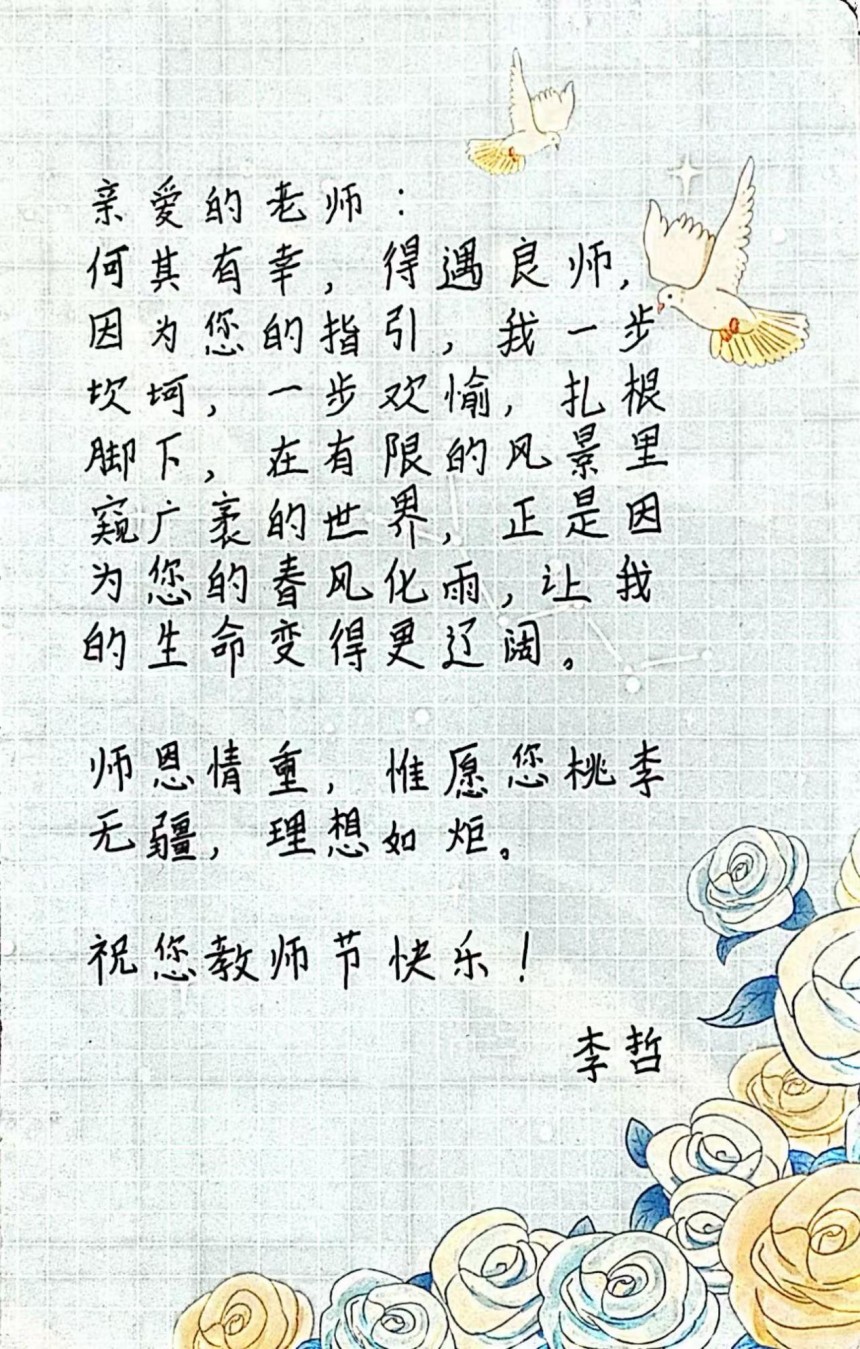 亲爱的老师：
何其有幸，得遇良师，
因为您的指引，我一步
坎坷，一步欢愉，扎根
脚下，在有限的风景里
窥广袤的世界，正是因
为您的春风化雨，让我
的生命变得更辽阔。
师恩情重，惟愿您桃李
无疆，理想如炬。
祝您教师节快乐！
李哲